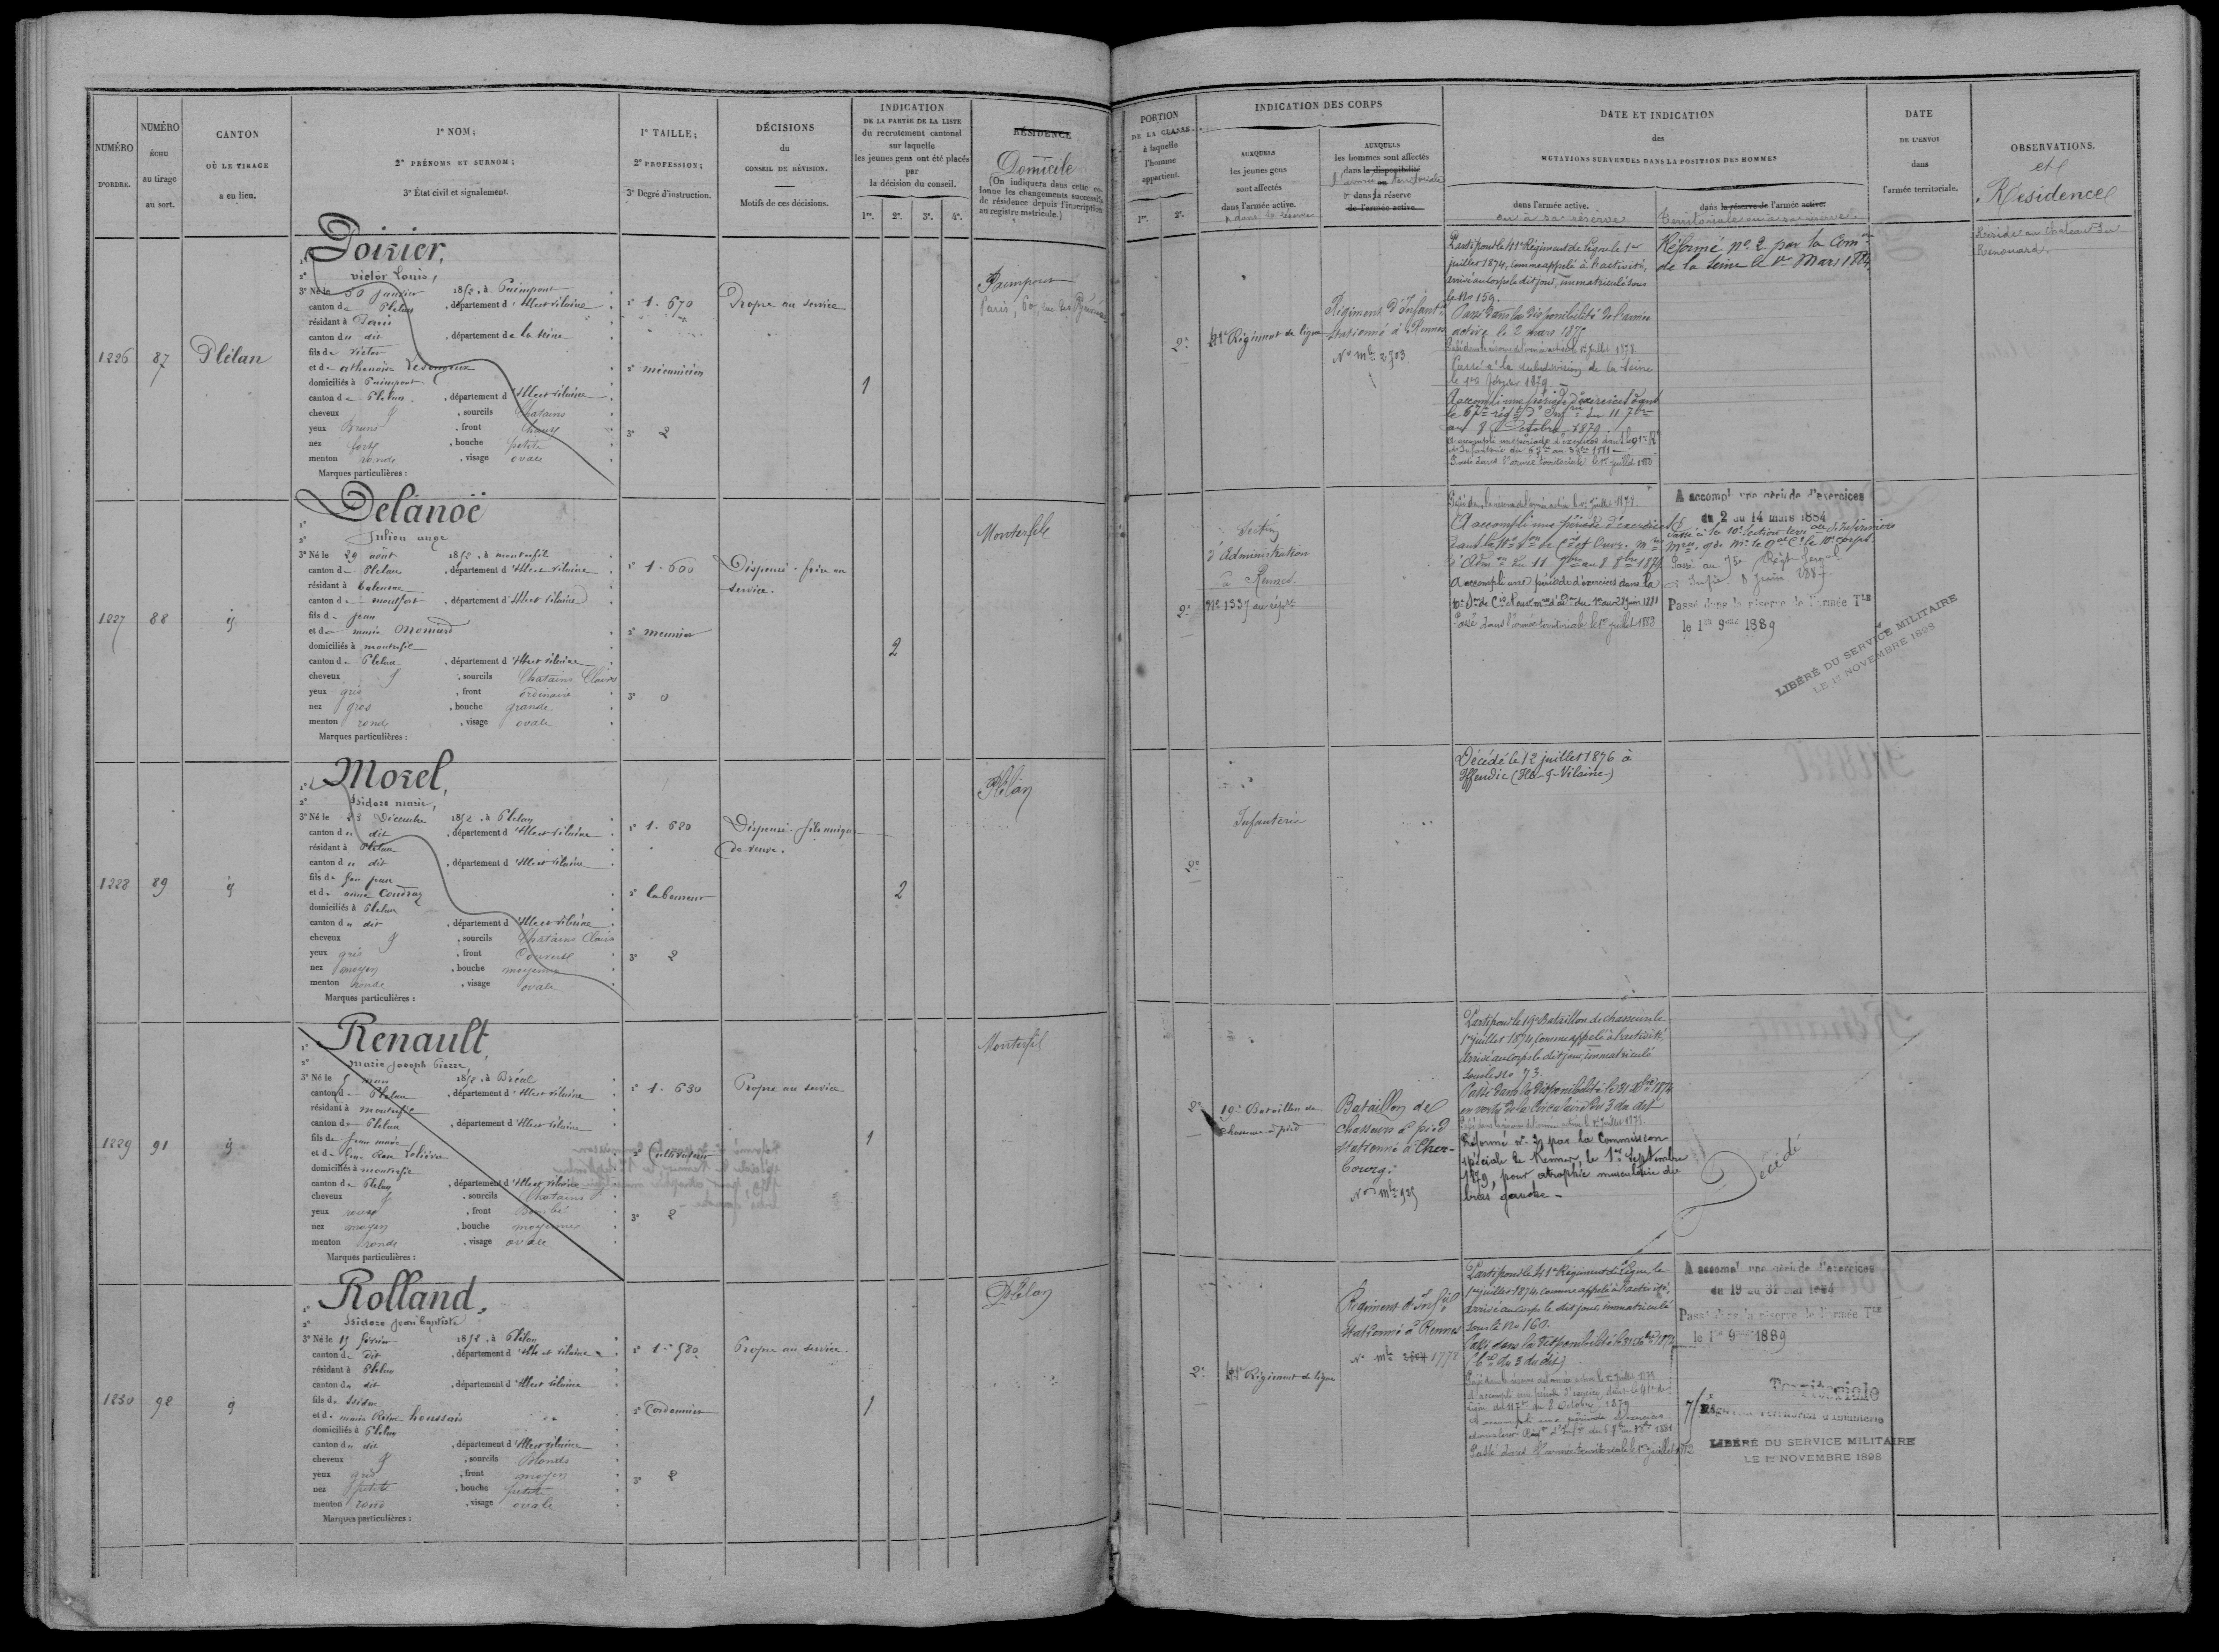 NUMÉRO
D'ORDRE.
NUMÉRO
ÉCHU
au tirage
au sort.
CANTON
OÙ LE TIRAGE
a eu lieu.
1° NOM;
2° PRÉNOMS ET SURNOM;
3° État civil et signalement.
1° TAILLE;
2° PROFESSION;
3° Degré d'instruction.
DÉCISIONS
du
CONSEIL DE RÉVISION.
Motifs de ces décisions.
INDICATION
DE LA PARTIE DE LA LISTE
du recrutement cantonal
sur laquelle
les jeunes gens ont été placés
par
la décision du conseil.
1re. 2e. 3e. 4e.
RÉSIDENCE
Domicile
(On indiquera dans cette co-
lonne les changements successifs
de résidence depuis l'inscription
au registre matricule.)
1226
87
Plélan
Poirier,
victor Louis,
3° Né le 30 janvier 1852, à Paimpont
canton de Plelan, département d'Ille et vilaine
résidant à Paris
canton du dit, département de la Seine
fils de Victor
et de
domiciliés à Paimpont
canton de Plelan, département d'Ille et vilaine
cheveux, sourcils Chatains
yeux Bruns, front
nez fort, bouche petite
menton ronde, visage ovale
Marques particulières :
1° 1. 670
2° mécanicien
3° 2
Propre au service
1
Paimpont
1227
88
id
Delanoë
Julien ange
3° Né le 29 août 1852, à montrefil
canton de Plelan, département d'Ille et vilaine
résidant à Talensac
canton de montfort, département d'Ille et vilaine
fils de jean
et de marie
domiciliés à montrefil
canton de Plelan, département d'Ille et vilaine
cheveux, sourcils Chatains Clairs
yeux gris, front ordinaire
nez gros, bouche grande
menton ronde, visage ovale
Marques particulières :
1° 1. 600
2° meunier
3° 0
Dispensé. frère au
service.
2
Monterfil
1228
89
id
Morel,
Isidore marie,
3° Né le 23 Décembre 1852, à Plelan
canton du dit, département d'Ille et vilaine
résidant à Plelan
canton du dit, département d'Ille et vilaine
fils de feu jean
et de anne
domiciliés à Plelan
canton du dit, département d'Ille et vilaine
cheveux, sourcils Chatains Clairs
yeux gris, front Couvert
nez moyen, bouche moyenne
menton ronde, visage ovale
Marques particulières :
1° 1. 680
2° laboureur
3° 2
Dispensé. fils unique
de veuve.
2
Plélan
1229
91
id
Renault,
marie joseph Pierre
3° Né le 5 mars 1852, à Bréal
canton de Plelan, département d'Ille et vilaine
résidant à montrefil
canton de Plelan, département d'Ille et vilaine
fils de jean marie
et de
domiciliés à montrefil
canton de Plelan, département d'Ille et vilaine
cheveux, sourcils Chatains
yeux roux, front Bombé
nez moyen, bouche moyenne
menton ronde, visage ovale
Marques particulières :
1° 1. 630
2° Cultivateur
3° 2
Propre au service
1
Monterfil
1230
98
id
Rolland,
Isidore jean baptiste
3° Né le 15 février 1852, à Plélan
canton du dit, département d'Ille et vilaine
résidant à Plelan
canton du dit, département d'Ille et vilaine
fils de Isidore
et de marie houssais
domiciliés à Plelan
canton du dit, département d'Ille et vilaine
cheveux, sourcils Blonds
yeux gris, front moyen
nez petit, bouche petite
menton rond, visage ovale
Marques particulières :
1° 1. 580
2° Cordonnier
3° 2
Propre au service.
1
Plélan
PORTION
DE LA CLASSE
à laquelle
l'homme
appartient.
1re. 2e.
INDICATION DES CORPS
AUXQUELS
les jeunes gens
sont affectés
dans l'armée active.
& dans la réserve
AUXQUELS
les hommes sont affectés
dans la disponibilité
l'armée territoriale
ou
& dans la réserve
de l'armée active.
DATE ET INDICATION
des
MUTATIONS SURVENUES DANS LA POSITION DES HOMMES
dans l'armée active.
ou à sa réserve
dans la réserve de l'armée active.
Territoriale ou à sa réserve.
DATE
DE L'ENVOI
dans
l'armée territoriale.
OBSERVATIONS.
et
Résidence
2e
41e Régiment de ligne
Régiment d'Infant
stationné à Rennes
No mle 2703
Parti pour le 41e Régiment de ligne le 1er
juillet 1874, comme appelé à l'activité,
arrivé au corps le dit jour, immatriculé sous
le No 159.
Passé dans la disponibilité de l'armée
active le 2 mars
Passé dans la réserve de l'armée active le 1er juillet 1878
Passé à la subdivision de la Seine
le 1er février 1879.
A accompli une période d'exercices dans
le 67me rég d'Infrie du 11 7bre
au 8 Octobre 1879.
Passé dans l'armée territoriale le 1er juillet
Réformé no 2 par la Comon
de la Seine le 1er Mars 1884
Réside au chateau du
Renouard.
2e
Section
d'Administration
à Rennes.
No 1337 au répre
Passé dans la réserve de l'armée active le 1er juillet 1878
A accompli une période d'exercices
A accompli une période d'exercices dans la
Passé dans l'armée territoriale le 1er juillet
A accompli une période d'exercices
du 2 au 14 mars 1884
Passé dans la réserve de l'armée Tle
le 1er 9bre 1889
LIBÉRÉ DU SERVICE MILITAIRE
LE 1er NOVEMBRE 1898
2e
Infanterie
Décédé le 12 juillet 1876 à
Iffendic (Ille-&-Vilaine)
2e
19e Bataillon de
chasseurs à pied
Bataillon de
chasseurs à pied
stationné à Cher-
bourg.
Parti pour le 19e Bataillon de chasseurs le
1er juillet 1874, comme appelé à l'activité,
arrivé au corps le dit jour, immatriculé
sous le No 73.
Passé dans la disponibilité le 31 Xbre 1874
en vertu de la Circulaire du 3 du dit
Réformé no 2 par la Commission
spéciale de Rennes, le 1er Septembre
1879, pour atrophie musculaire du
bras gauche -
Décédé
2e
41e Régiment de ligne
Régiment d'Infie
stationné à Rennes
No mle 1778
Parti pour le 41e Régiment de ligne le
1er juillet 1874, comme appelé à l'activité,
arrivé au corps le dit jour, immatriculé
sous le No 160.
Passé dans la disponibilité le 31 Xbre 1874
(Cre du 3 du dit)
A accompli une période d'exercices dans le 41e de
ligne du 11 7bre au 8 Octobre 1879
A accompli une période d'exercices
Passé dans l'armée territoriale le 1er juillet
A accompli une période d'exercices
du 19 au 31 mai 1884
Passé dans la réserve de l'armée Tle
le 1er 9bre 1889
Territoriale
75e Régiment territorial d'infanterie
LIBÉRÉ DU SERVICE MILITAIRE
LE 1er NOVEMBRE 1898